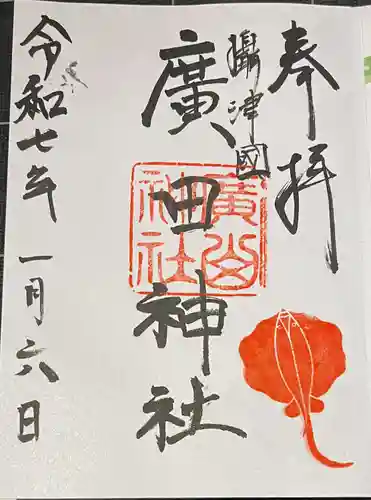 奉拝
攝津國
廣田神社
廣田
神社
令和七年 一月六日